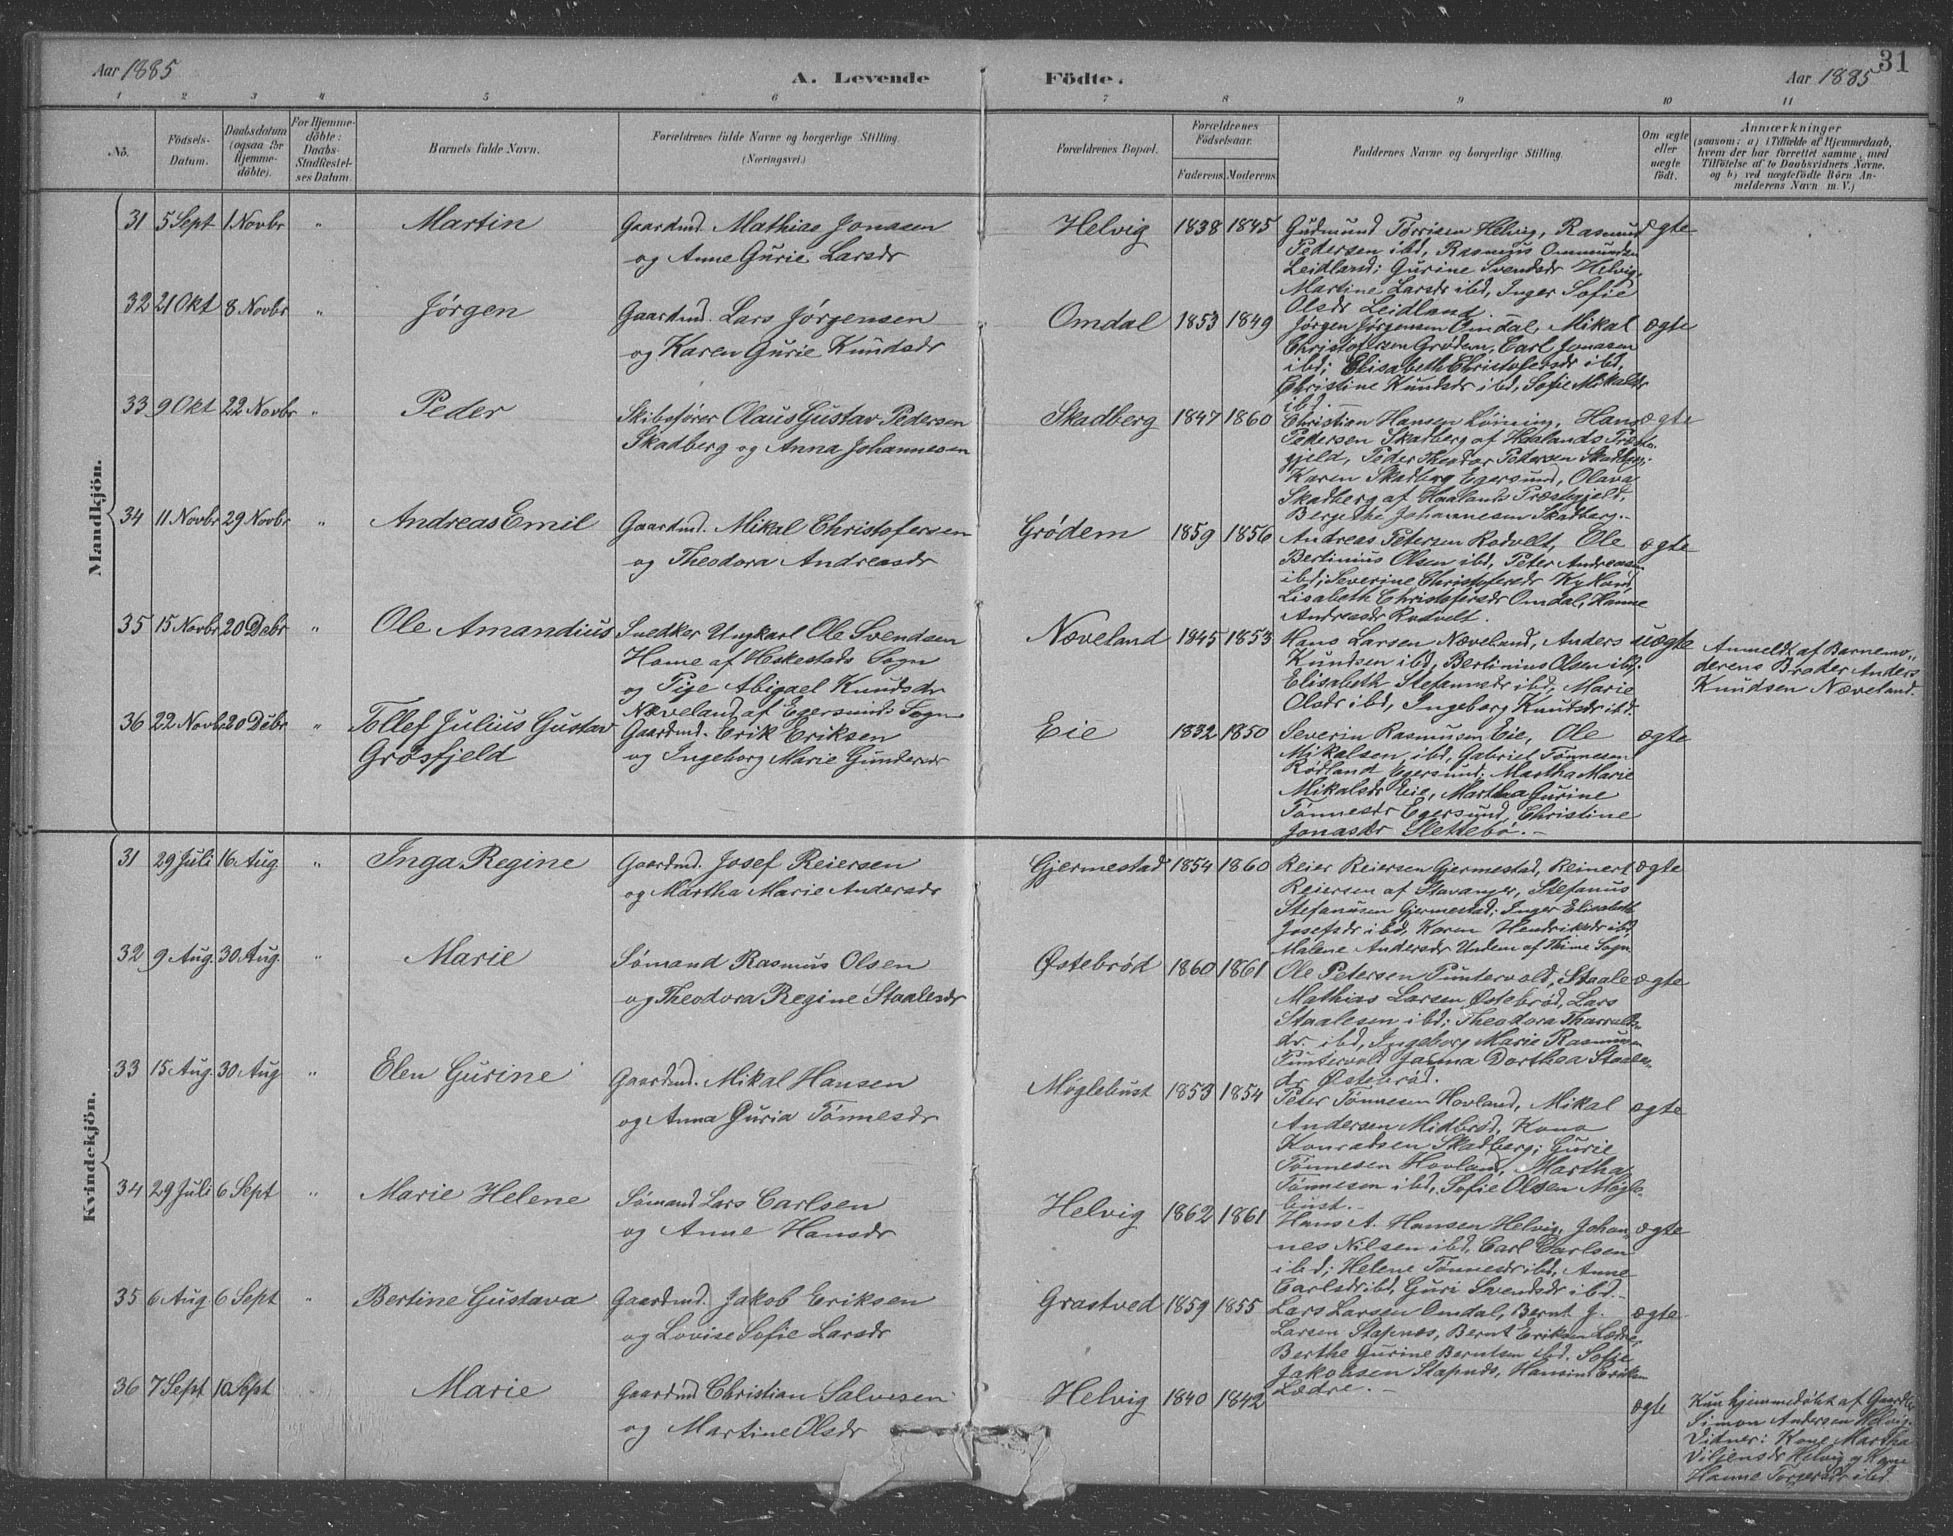 31
Aar 1885
A. Levende Födte.
Aar 1885
1 2 3 4 5 6 7 8 9 10 11
No.
Födsels-
Datum.
Daabsdatum
(ogsaa for
Hjemme-
döbte).
For Hjemme-
döbte:
Daabs-
Stadfæstel-
ses Datum.
Barnets fulde Navn.
Forældrenes fulde Navne og borgerlige Stilling.
(Næringsvei.)
Forældrenes Bopæl.
Forældrenes
Födselsaar.
Faderens. Moderens.
Faddernes Navne og borgerlige Stilling.
Om ægte
eller
uægte
födt.
Anmærkninger
(saasom: a) i Tilfælde af Hjemmedaab,
hvem der har forrettet samme, med
Tilföielse af to Daabsvidners Navne.
og b) ved uægtefödte Börn An-
melderens Navn m. V.)
Mandkjön.
31 5 Sept 1 Novbr " Martin
Gaardmd. Mathias Jonasen
og Anne Gurie Larsdr
Helvig 1838 1845
Gudmund Tørrisen Helvig, Rasmus
Pedersen ibd, Rasmus Ommundsen
Leidland; Gurine Svendsdr Helvig,
Martine Larsdr ibd, Inger Sofie
Olsdr Leidland.
ægte
32 21 Okt 8 Novbr " Jørgen
Gaardmd. Lars Jørgensen
og Karen Gurie Knudsdr
Omdal 1853 1849
Jørgen Jørgensen Omdal, Mikal
Christofersen Grødem, Carl Jonasen
ibd; Elisabeth Christofersdr ibd,
Christine Knudsdr ibd, Sofie Mikalsdr
ibd.
ægte
33 9 Okt 22 Novbr " Peder
Skibsfører Olaus Gustav Pedersen
Skadberg og Anna Johannesen
Skadberg 1847 1860
Christian Hansen Løining, Hans
Pedersen Skadberg af Haalands Præste-
gjeld, Peder Theodor Pedersen Skadberg;
Karen Skadberg Egersund, Olava
Skadberg af Haalands Præstegjeld,
Bergethe Johannesen Skadberg.
ægte
34 11 Novbr 29 Novbr " Andreas Emil
Gaardmd. Mikal Christofersen
og Theodora Andreasdr
Grødem 1859 1856
Andreas Petersen Rodvelt, Ole
Bertinius Olsen ibd, Peter Andreasen
ibd; Severine Christofersdr Kyland,
Lisabeth Christofersdr Omdal, Hanne
Andreasdr Rodvelt.
ægte
35 15 Novbr 20 Debr " Ole Amandius
Snedker Ungkarl Ole Svendsen
Home af Heskestads Sogn
og Pige Abigael Knudsdr
Næveland af Egersunds Sogn
Næveland 1845 1853
Hans Larsen Næveland, Anders
Knudsen ibd, Bertinius Olsen ibd;
Elisabeth Stefansdr ibd, Marie
Olsdr ibd, Ingeborg Knutsdr ibd.
uægte
Anmeldt af Barnemo-
derens Broder Anders
Knudsen Næveland.
36 22 Novb 20 Debr " Tollef Julius Gustav
Grøsfjeld
Gaardmd. Erik Eriksen
og Ingeborg Marie Gundersdr
Eie 1832 1850
Severin Rasmusen Eie, Ole
Mikalsen ibd, Gabriel Tønnesen
Rødland Egersund; Martha Marie
Mikalsdr Eie, Martha Gurine
Tønnesdr Egersund, Christine
Jonasdr Slettebø.
ægte
Kvindekjön.
31 29 Juli 16 Aug " Inga Regine
Gaardmd. Josef Reiersen
og Martha Marie Andersdr
Gjermestad 1854 1860
Reier Reiersen Gjermestad, Reinert
Reiersen af Stavanger, Stefanus
Stefanusen Gjermestad; Inger Elisabeth
Josefsdr ibd, Karen Hendriksdr ibd,
Malene Andersdr Undem af Thime Sogn
ægte
32 9 Aug. 30 Aug " Marie
Sømand Rasmus Olsen
og Theodora Regine Staalesdr
Østebrød 1860 1861
Ole Petersen Puntervold, Staale
Mathias Larsen Østebrød, Lars
Staalesen ibd; Theodora Tharalds-
dr. ibd, Ingeborg Marie Rasmusen
Puntervold, Janna Dorthea Staales-
dr Østebrød.
ægte
33 15 Aug. 30 Aug " Elen Gurine
Gaardmd. Mikal Hansen
og Anna Guria Tønnesdr
Møglebust 1853 1854
Peter Tønnesen Hovland, Mikal
Andersen Midbrød, Kono
Konradsen Skadberg; Gurie
Tønnesen Hovland, Martha
Tønnesen ibd, Sofie Olsen Møgle-
bust.
ægte
34 29 Juli 6 Sept " Marie Helene
Sømand Lars Carlsen
og Anne Hansdr
Helvig 1862 1861
Hans A. Hansen Helvig, Johan-
nes Nilsen ibd, Carl Carlsen
ibd; Helene Tønnesdr ibd, Anne
Carlsdr ibd, Guri Svendsdr ibd.
ægte
35 6 Aug. 6 Sept " Bertine Gustava
Gaardmd. Jakob Eriksen
og Lovise Sofie Larsdr
Grastved 1859 1855
Lars Larsen Omdal, Bernt J.
Larsen Stapnes, Bernt Eriksen Lædre,
Berthe Gurine Berntsen ibd. Sofie
Jakobsen Stapnes, Hansine Eriksen
Lædre.
ægte
36 7 Sept 10 Sept Marie
Gaardmd Christian Salvesen
og Martine Olsdr
Helvig 1840 1842
ægte
Kun hjemmedøbt af Gaardbr.
Simon Andersen Helvig.
Vidner: Kone Martha
Viljensdr Helvig og Kone
Hanne Torgersdr ibd.